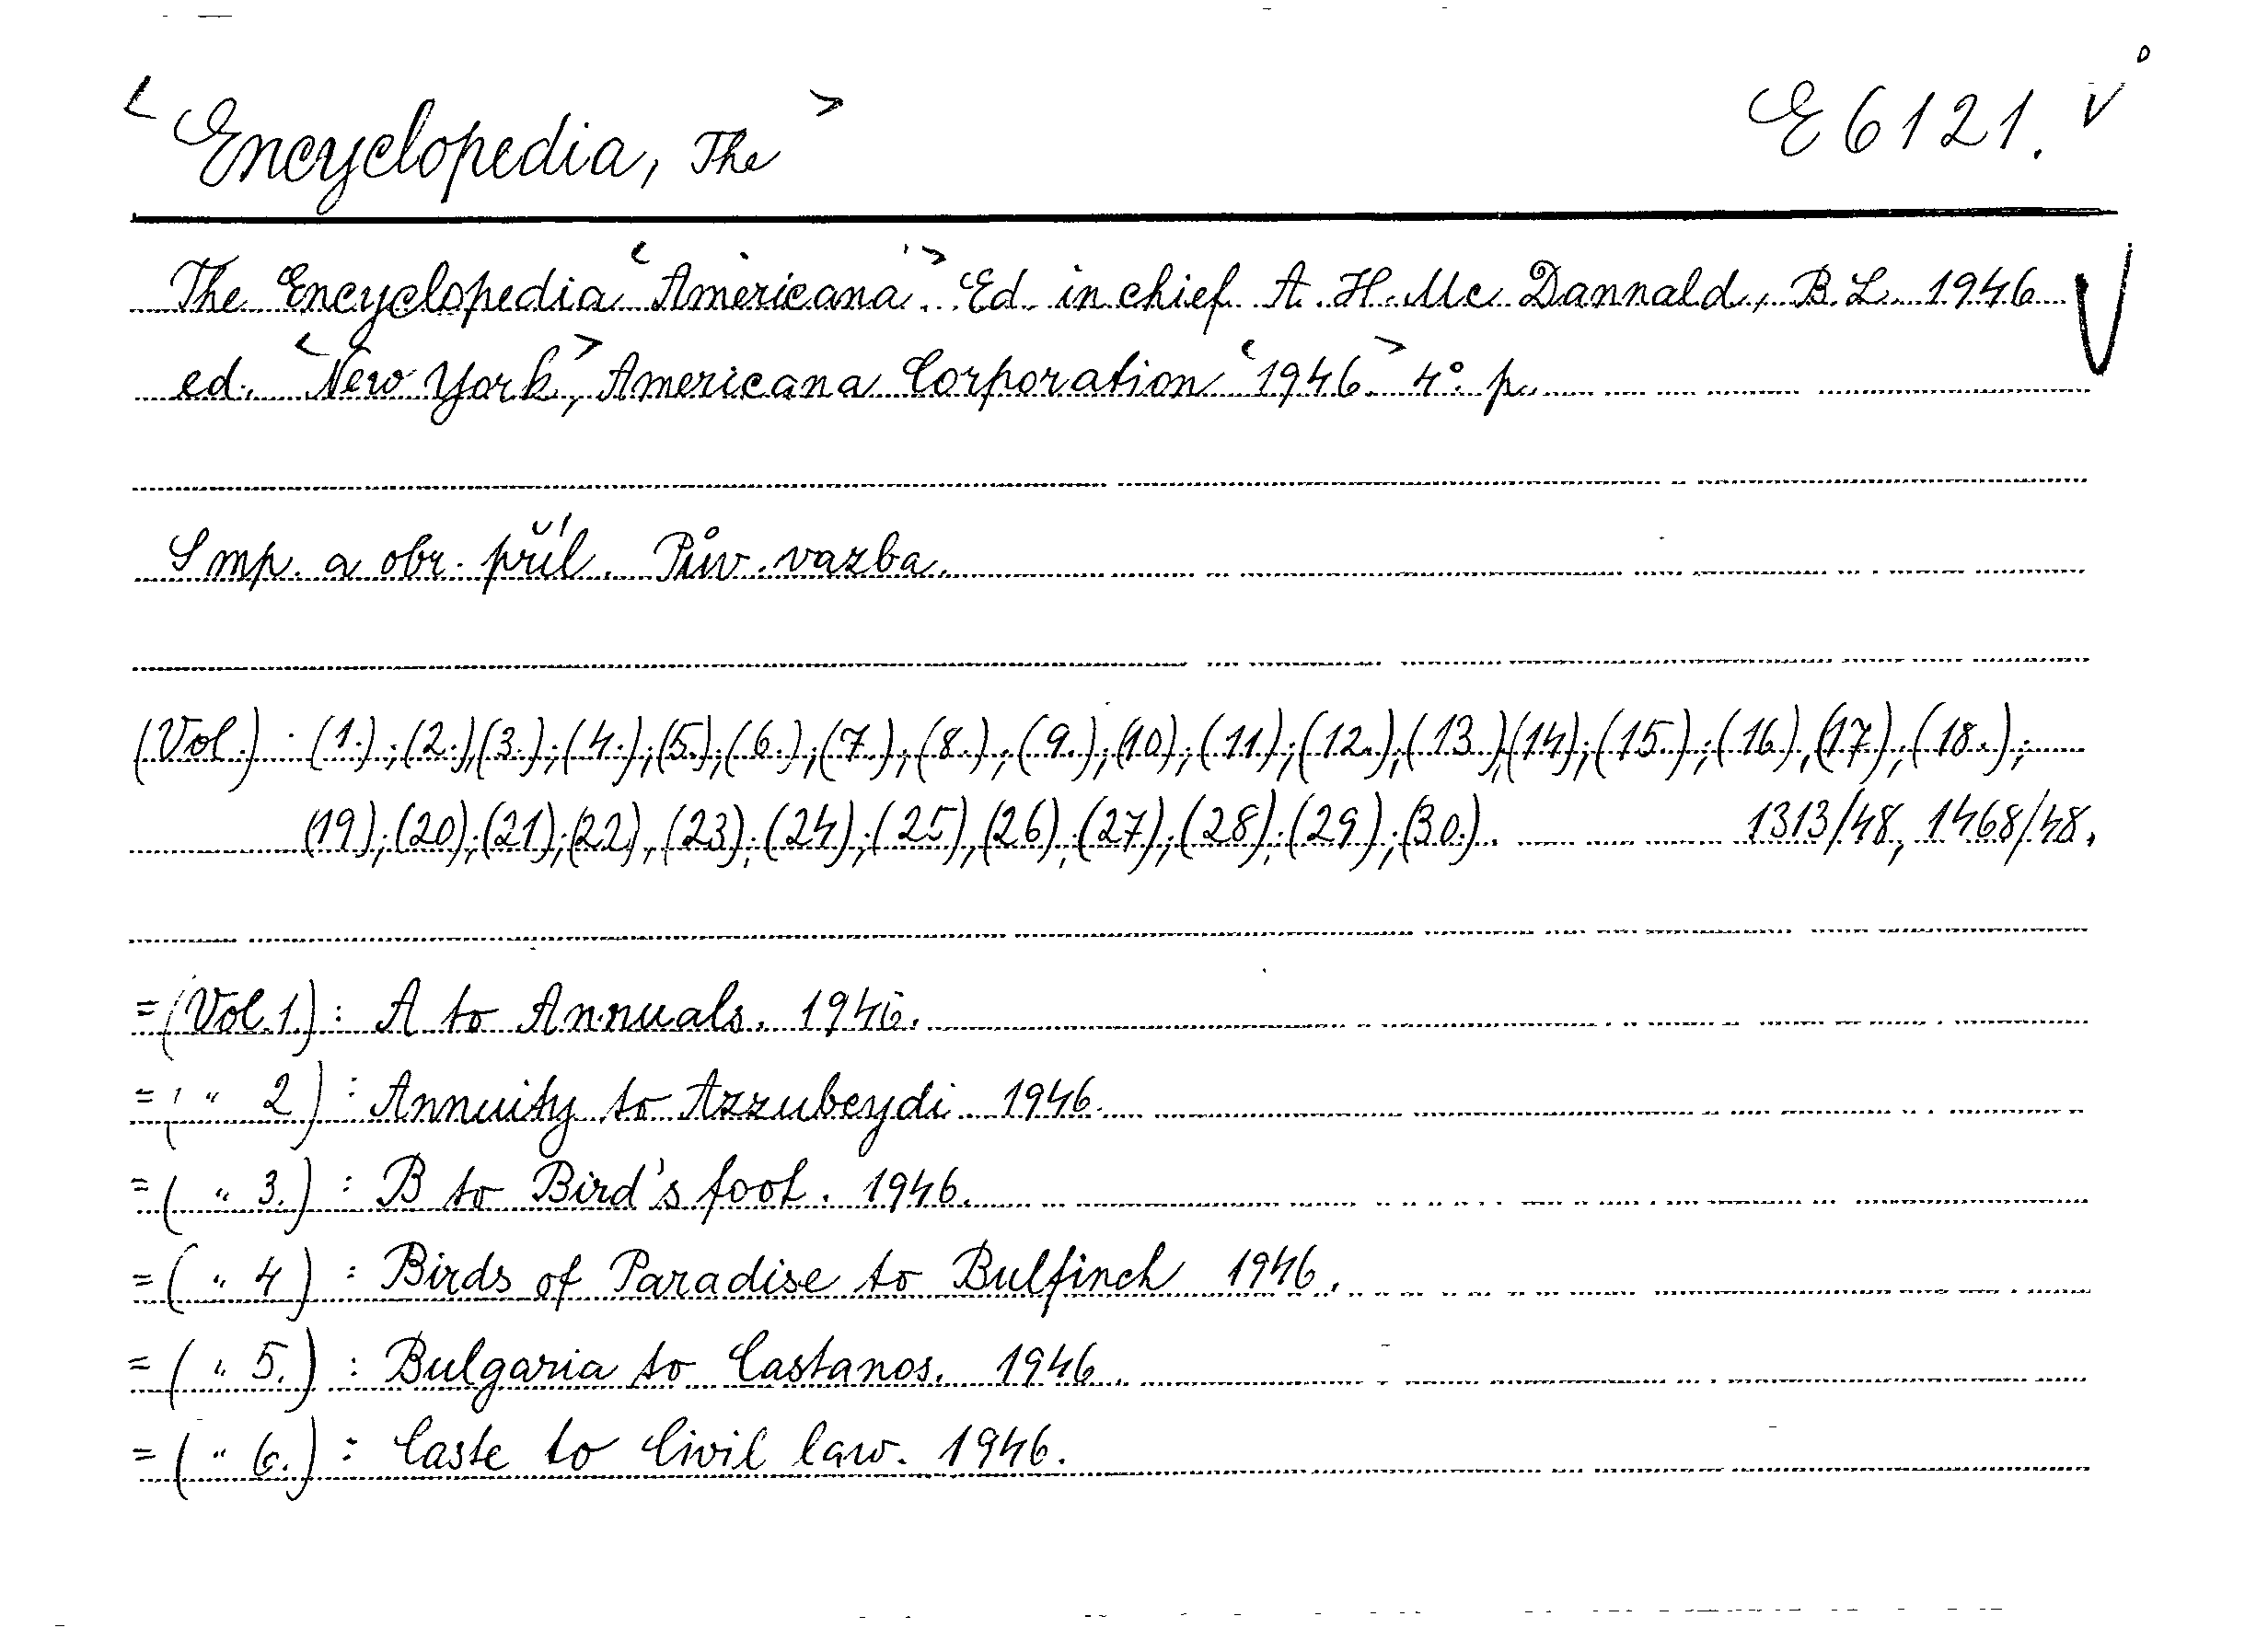 <Encyclopedia, The> E 6121.
The Encyclopedia <Americana>. Ed. in chief A. H. Mc Dannald, B. L. 1946
ed. <New York,> Americana Corporation <1946> 4°. p.
S mp. a obr. příl. Pův. vazba.
(Vol.) : (1.); (2.), (3.); (4.); (5.); (6.); (7.); (8.); (9.); (10); (11.); (12.); (13.), (14); (15.); (16.), (17.), (18.);
(19); (20); (21); (22), (23); (24); (25), (26); (27); (28); (29); (30.). 1313/48, 1468/48.
= (Vol. 1.) : A to Annuals. 1946.
= ( " 2 ) : Annuity to Azzubeydi 1946.
= ( " 3. ) : B to Bird's foot. 1946.
= ( " 4 ) : Birds of Paradise to Bulfinch 1946.
= ( " 5. ) : Bulgaria to Castanos. 1946.
= ( " 6. ) : Caste to Civil law. 1946.